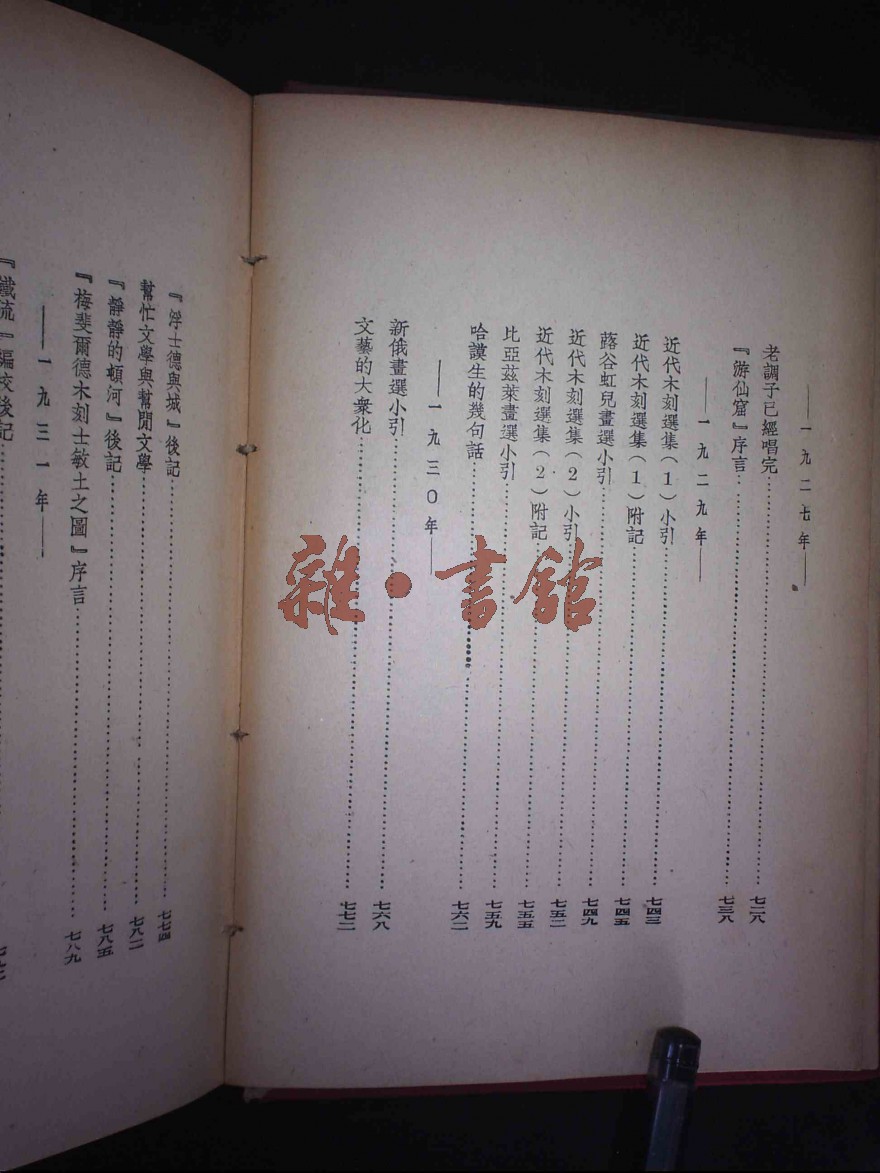 ——一九二七年——
老調子已經唱完………七二八
『游仙窟』序言………七三八
——一九二九年——
近代木刻選集(1)小引………七四三
近代木刻選集(1)附記………七四五
蕗谷虹兒畫選小引………七四九
近代木刻選集(2)小引………七五二
近代木刻選集(2)附記………七五五
比亞茲萊畫選小引………七五九
哈謨生的幾句話………七六二
——一九三〇年——
新俄畫選小引………七六八
文藝的大衆化………七七二
『浮士德與城』後記………七七四
幫忙文學與幫閒文學………七八二
『靜靜的頓河』後記………七八五
『梅斐爾德木刻士敏土之圖』序言………七八九
——一九三一年——
『鐵流』編校後記………
雜·書館